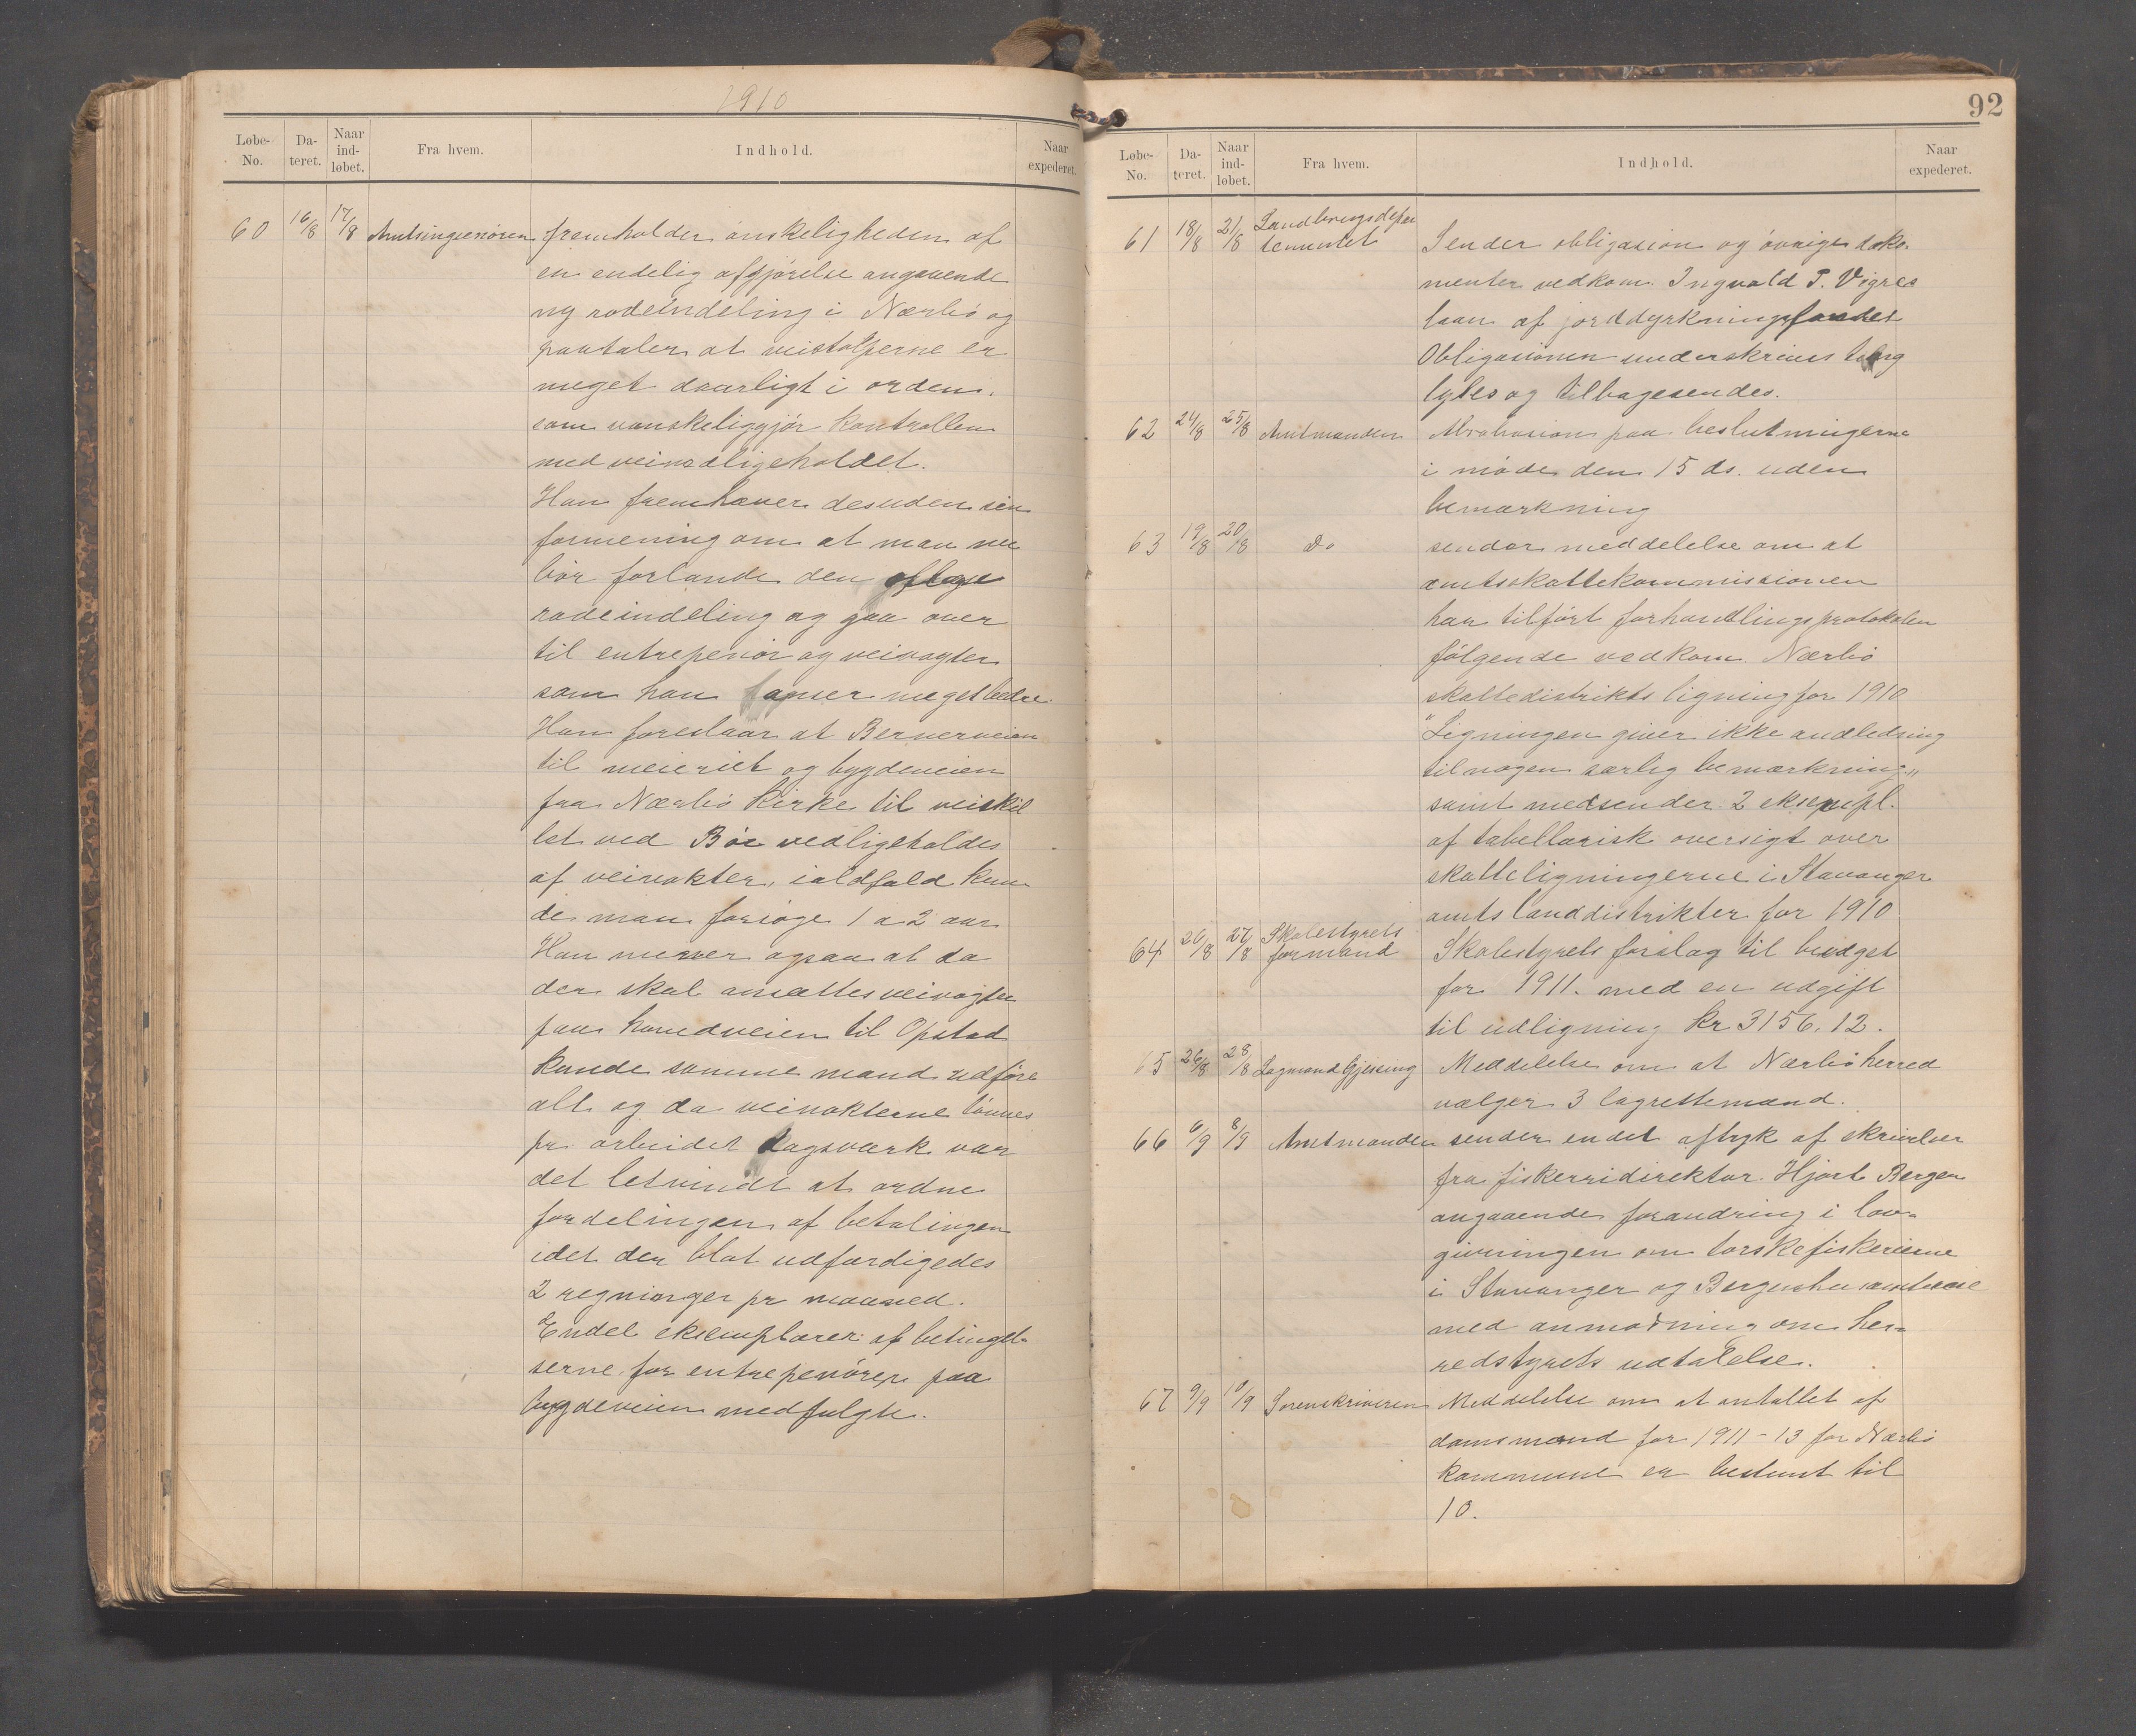 1910
Løbe-No. Da-teret. Naar ind-løbet. Fra hvem. Indhold. Naar expederet.
60 16/8 17/8 Amtsingeniøren fremholder ønskeligheden af
en endelig afgjørelse angaaende
ny rodeindeling i Nærbø og
paataler at veistolperne er
meget daarligt i orden,
som vanskeliggjør kontrollen
med veivedligeholdet.
Han fremhæver desuden sin
formening om at man nu
bør forlande den
rodeindeling og gaa over
til entrepenør og veivogter
som han anser meget bedre.
Han foreslaar at Berverveien
til meieriet og bygdeveien
fra Nærbø Kirke til veiskil
let ved Bøe vedligeholdes
af veivokter, ialdfald kun
de man forsøge 1 a 2 aar
Han mener ogsaa at da
der skal ansættes veivogter
paa hovedveien til Opstad
kunde samme mand udføre
alt og da veivokterne lønnes
pr. arbeidet dagsværk var
det letvindt at ordne
fordelingen af betalingen
idet der blot udfærdigedes
2 regninger pr maaned.
Endel eksemplarer af betingel-
serne for entrepenører paa
bygdeveien medfulgte.
92
Løbe-No. Da-teret. Naar ind-løbet. Fra hvem. Indhold. Naar expederet.
61 18/8 21/8 Landbrugsdepar
tementet Sender obligasion og øvrige doku-
menter vedkom. Ingvald T. Vigres
laan af jorddyrkningsfondet
Obligasionen underskrives ting
lyses og tilbagesendes.
62 24/8 25/8 Amtmanden Abrobasion paa beslutningerne
i møde den 15 ds. uden
bemærkning
63 19/8 20/8 Do sender meddelelse om at
amtsskattekommissionen
har tilført forhandlingsprotokolen
følgende vedkom. Nærbø
skattedistrikts ligning for 1910
"Ligningen giver ikke andledning
til nogen særlig bemærkning"
samt medsender 2 eksempl.
af tabellarisk oversigt over
skatteligningerne i Stavanger
amts landdistrikter for 1910
64 26/8 27/8 Skolestyrets
formand Skolestyrets forslag til budget
for 1911. med en udgift
til udligning kr 3156.12.
65 26/8 28/8 Lagmand Gjessing Meddelelse om at Nærbø herred
vælger 3 lagrettemænd.
66 6/9 8/9 Amtmanden sender endel aftryk af skrivelser
fra fiskeridirektør Hjort Bergen
angaaende forandring i lov-
givningen om torskefiskerierne
i Stavanger og Bergenshus amterne
med anmodning om her-
redstyrets udtalelse.
67 9/9 10/9 Sorenskriveren Meddelelse om at antallet af
domsmænd for 1911-13 for Nærbø
kommune er bestemt til
10.